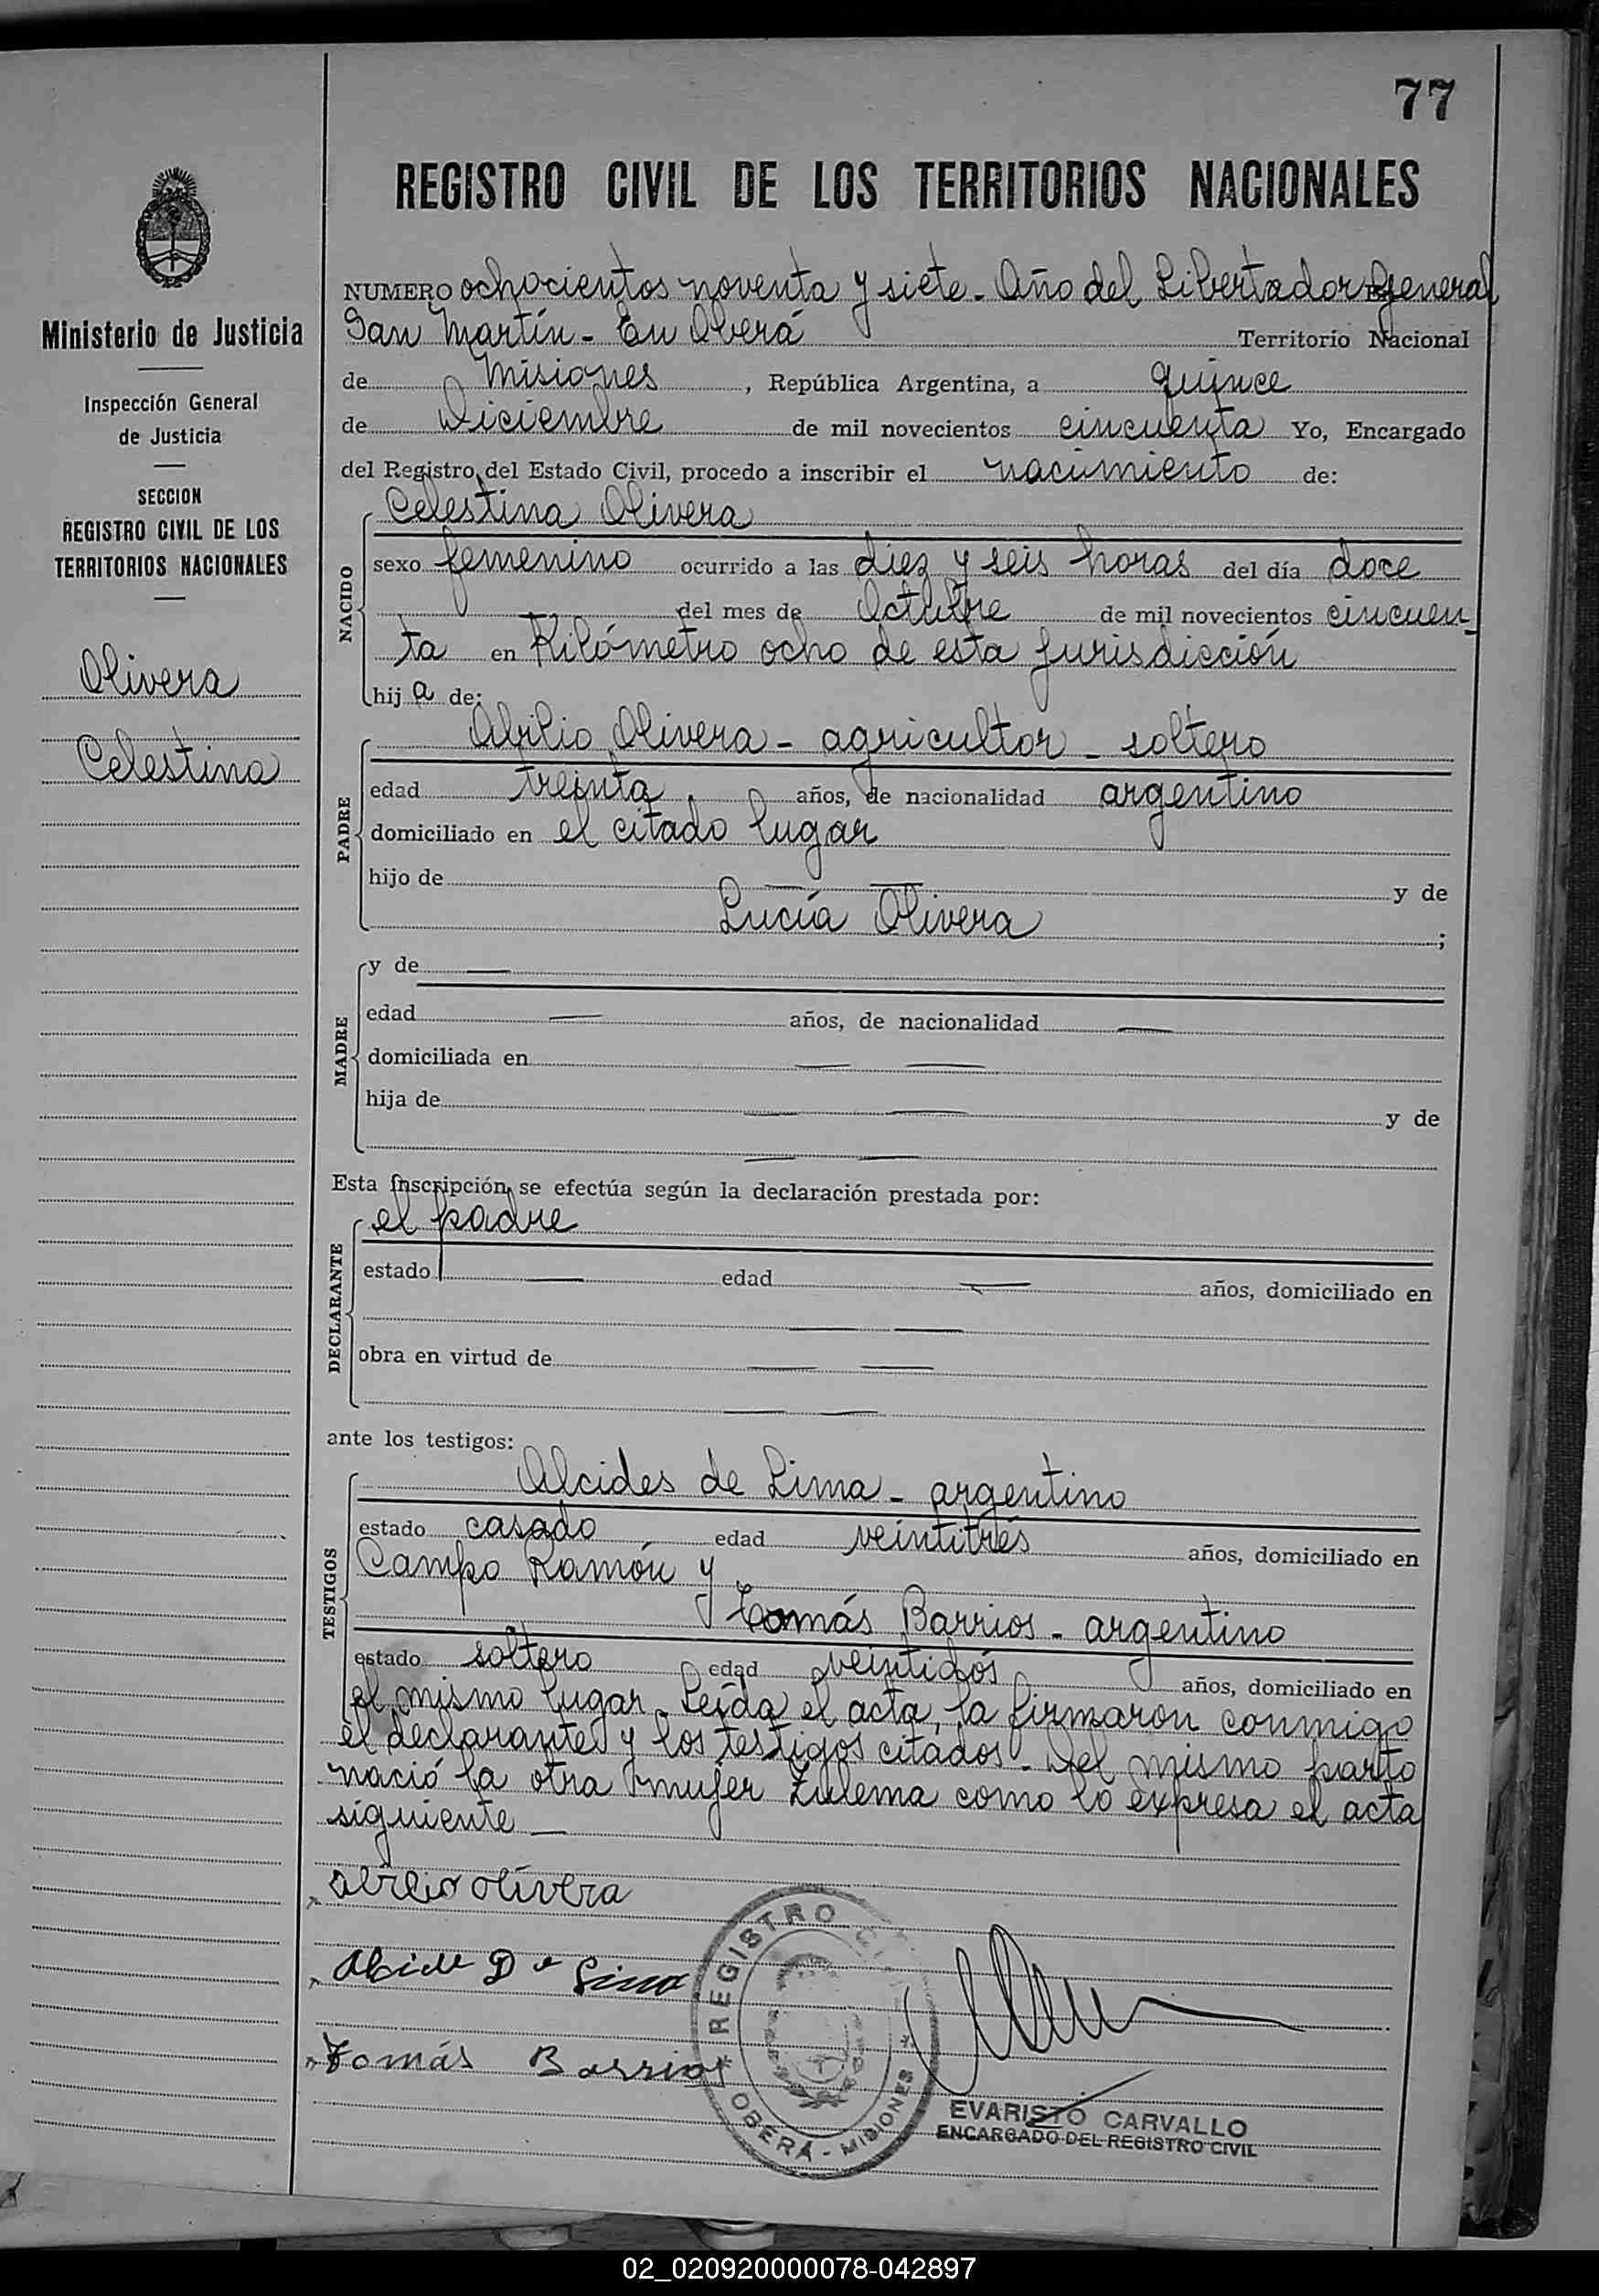 77
REGISTRO CIVIL DE LOS TERRITORIOS NACIONALES
Ministerio de Justicia
Inspección General
de Justicia
SECCION
REGISTRO CIVIL DE LOS
TERRITORIOS NACIONALES
Olivera
Celestina
NUMERO ochocientos noventa y siete - Año del Libertador General
San Martín - En Oberá Territorio Nacional
de Misiones, República Argentina, a quince
de Diciembre de mil novecientos cincuenta Yo, Encargado
del Registro del Estado Civil, procedo a inscribir el nacimiento de:
NACIDO
Celestina Olivera
sexo femenino ocurrido a las diez y seis horas del día doce
del mes de Octubre de mil novecientos cincuen-
ta en Kilómetro ocho de esta jurisdicción
hija de:
PADRE
Abilio Olivera - agricultor - soltero
edad treinta años, de nacionalidad argentino
domiciliado en el citado lugar
hijo de — — y de
Lucía Olivera ;
MADRE
y de —
edad — años, de nacionalidad —
domiciliada en — —
hija de — — y de
— —
Esta inscripción se efectúa según la declaración prestada por:
DECLARANTE
el padre
estado — edad — años, domiciliado en
— —
obra en virtud de — —
— —
ante los testigos:
TESTIGOS
Alcides de Lima - argentino
estado casado edad veintitrés años, domiciliado en
Campo Ramón y
Tomás Barrios - argentino
estado soltero edad veintidós años, domiciliado en
el mismo lugar. Leída el acta, la firmaron conmigo
el declarante y los testigos citados - Del mismo parto
nació la otra mujer Zulema como lo expresa el acta
siguiente —
abilio olivera
Alcide De Lima
Tomás Barrios
REGISTRO CIVIL
OBERÁ - MISIONES
EVARISTO CARVALLO
ENCARGADO DEL REGISTRO CIVIL
02_020920000078-042897